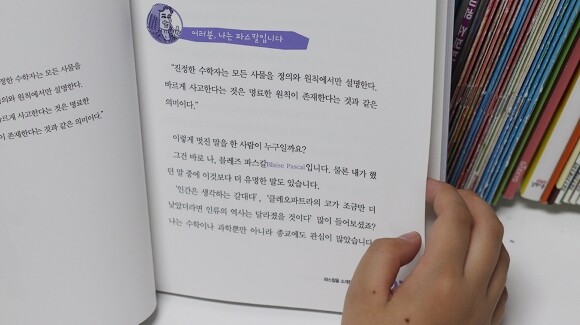 진정한 수학자는 모든 사물을
정의와 원칙에서만 설명한다.
바르게 사고한다는 것은 명료한
존재한다는 것과 같은 의미이다."
여러분, 나는 파스칼입니다
"진정한 수학자는 모든 사물을 정의와 원칙에서만 설명한다.
바르게 사고한다는 것은 명료한 원칙이 존재한다는 것과 같은
의미이다."
이렇게 멋진 말을 한 사람이 누구일까요?
그건 바로 나, 블레즈 파스칼Blaise Pascal입니다. 물론 내가 했
던 말 중에 이것보다 더 유명한 말도 있습니다.
'인간은 생각하는 갈대다', '클레오파트라의 코가 조금만 더
낮았더라면 인류의 역사는 달라졌을 것이다' 많이 들어보셨죠?
나는 수학이나 과학뿐만 아니라 종교에도 관심이 많았습니다
파스칼을 소개